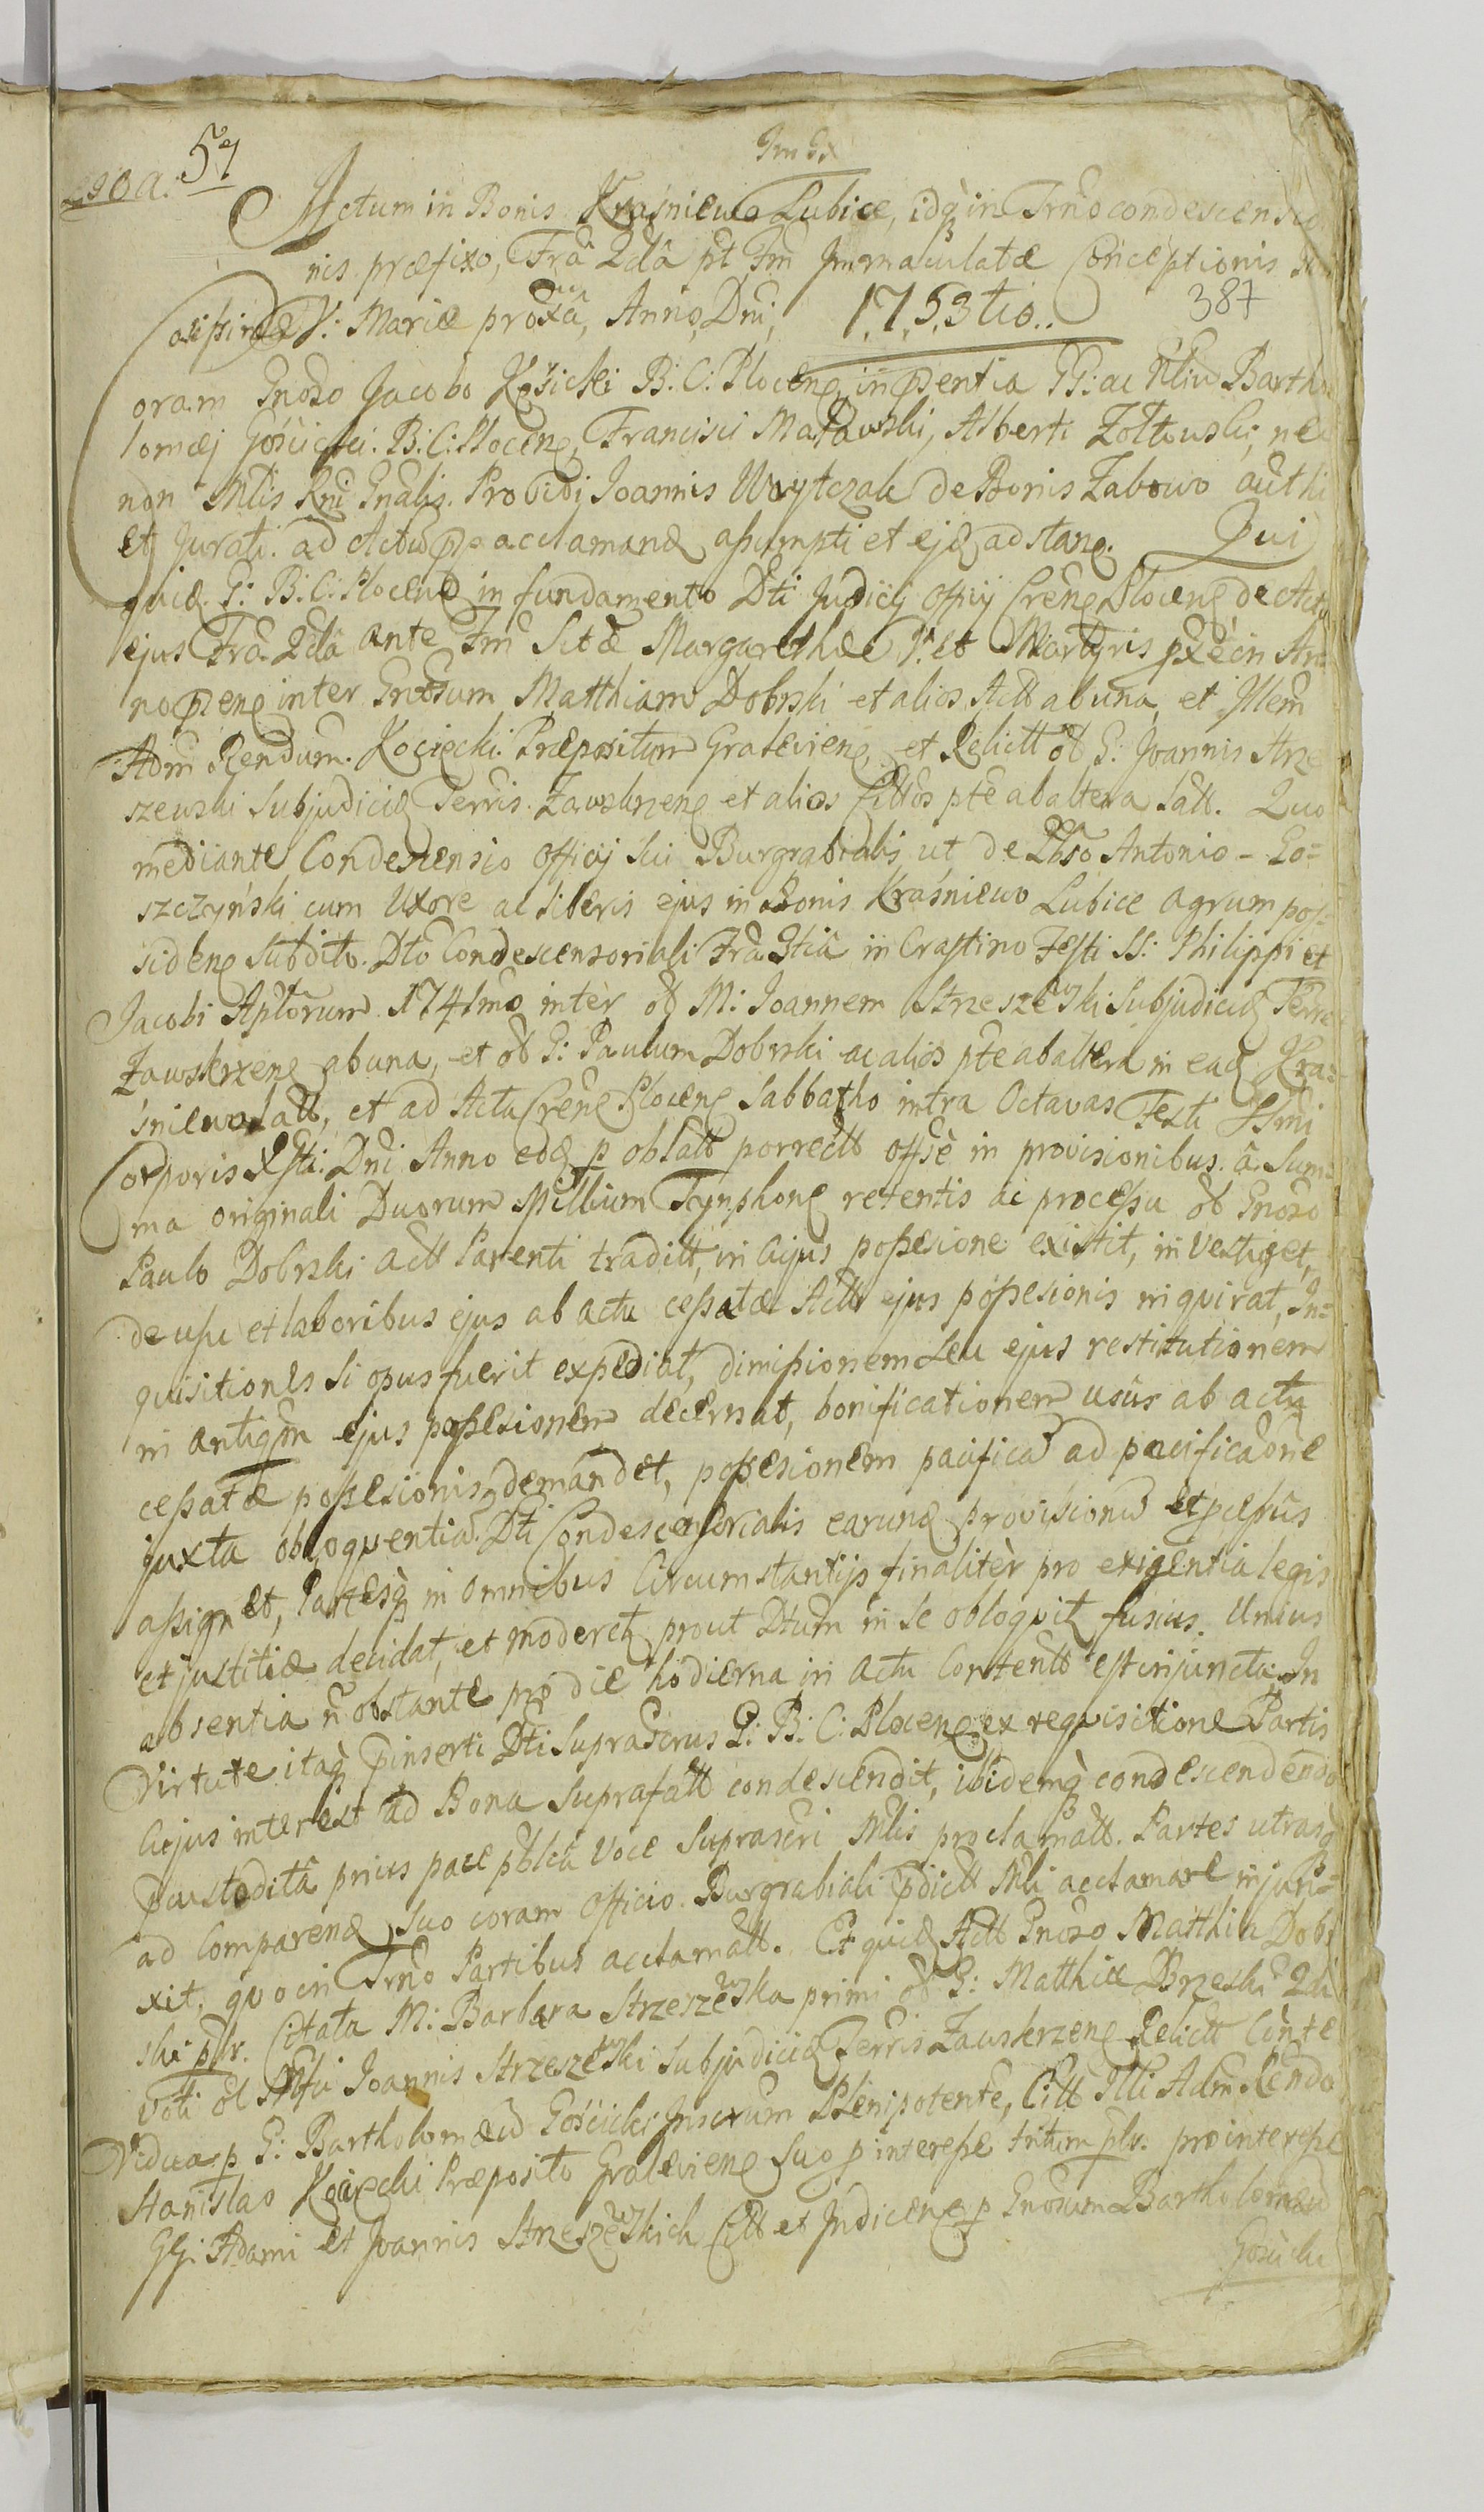 57
Actum in Bonis Kraśniewo Łubice, idq̃ in Trño condescensio
nis præfixo, Frâ 2dâ pt Fm̃ Immaculatæ Conceptionis
V: Mariæ proxâ, Anno, Dni, 1753tio.. 387
oram Gnoso Jacobo Kosicki B: C: Plocen in pñentia GG: ac Bartho
lomæj Gościcki B: C: Plocen, Francisci Makowski, Alberti Zołtowski, nec
non Mlis Rni Gnalis Providi Joannis Woytczak de Bonis Zabowo authi
et Jurati ad Actũ acclamand assumpti et ejd adstan. Qui
quid G: B: C: Plocen in fundamento Dti Judicij Officij Cren Plocen de Actu
ejus Frâ 2dâ ante Fm̃ Sctæ Margarethæ V: et Martyris in An
no pñen inter Gnosum Matthiam Dobrski et alios Actt ab una, et Illem
Adm Rendum Kocięcki Præpositum Gralevien, et Relictt ol G: Joannis Strze
szewski Subjudicid Terris Zawskrzen et alios Cittos pte ab altera Latt. Quo
mediante Condescensio Officij sui Burgrabialis ut de Antonio Go=
szczyński cum Uxore ac liberis ejus in Bonis Kraśniewo Łubice agrum pos=
siden subdito. Dto Condescensoriali Frâ 3tiâ in Crastino Festi SS: Philippi et
Jacobi Aplorum 1741mo inter ol M: Joannem Strzeszewski Subjudicid Terre
Zawskrzen ab una, et ol G: Paulum Dobrski ac alios pte ab altera in ead Kra=
śniewo Latt, et ad Acta Cren Plocen Sabbatho intra Octavas Festi SSmi
Corporis Xsti Dni Anno eod p oblatt porrectt offse in provisionibus â Sum=
ma originali Duorum Millium Tynphon retentis ac processu ol Gnoso
Paulo Dobrski Actt Parenti traditt, in cujus possesione existit, investiget,
de usu et laboribus ejus ab actu cessatæ Actt ejus possesionis inquirat, In=
quisitiones si opus fuerit expediat, dimissionem seu ejus restitutionem
in antiqm ejus possesionem decernat, bonificationem usûs ab actu
cessatæ possesionis demandet, possesionem pacificã ad pacificaõne
juxta obloquentiã Dti Condescensorialis earund provisionũ et pcessûs
assignet, Partesq̃ in omnibus Circumstantijs finalitèr pro exigentia legis
et justitiæ decidat, et moderet prout Dtum in se obloquit fusius. Unius
absentia ñ obstante pro die hodierna in actu Contentt est injuncta. In
Virtute itaq̃ pinserti Dti Suprascrus G: B: C: Plocen ex requisitione Partis
Cujus interest ad Bona Suprafatt condescendit, ibidemq̃ condescendendo
pcustoditâ prius pace pblca voce Suprascri Mlis proclamatt. Partes utrasq̃
ad Comparend suo coram officio Burgrabiali pdictt Mli acclamare injun=
xit, quo in Trño Partibus acclamatt. Et quid Actt Gnoso Matthia Dobr
ski plr. Citata M: Barbara Strzeszewska primi ol G: Matthiæ Brzeski 2di
voti ol Mfci Joannis Strzeszewski Subjudicid Terris Zawskrzen Relictt Conte
Vidua p G: Bartholomæũ Gościcki Plenipotente, Citt Illi Adm Rendo
Stanislao Kocięcki Præposito Gralevien Suo p interesse tritum plr. pro interesse
GG: Adami et Joannis Strzeszewskich Citt et Indicen p Gnosum Bartholomæũ
Gościcki